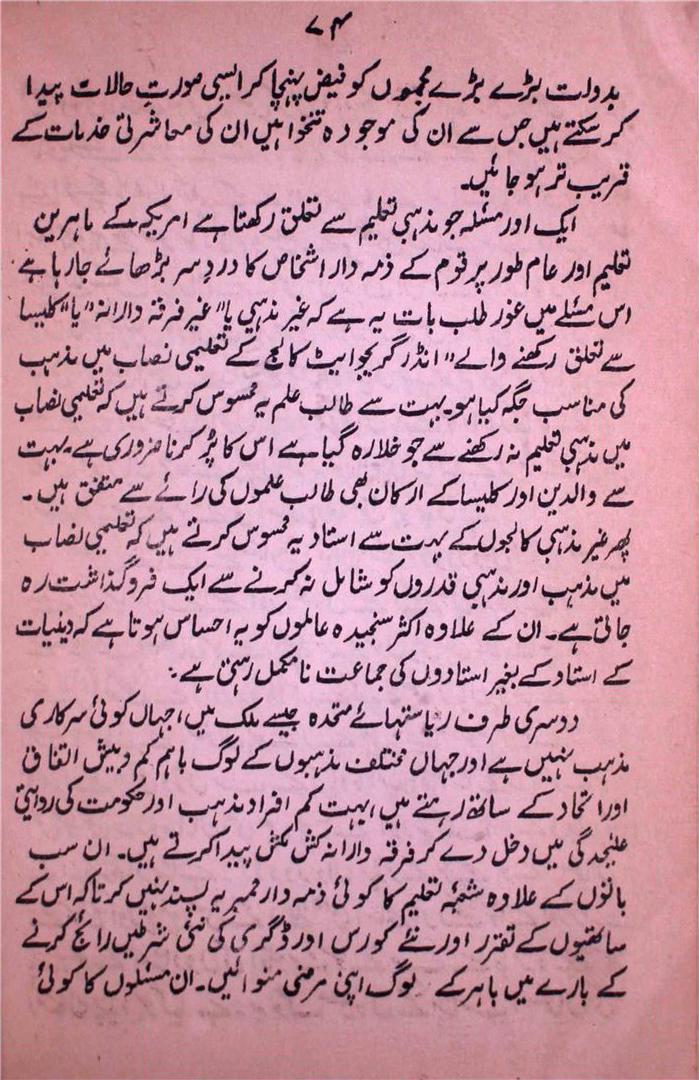 ۷۴
بدولت بڑے بڑے مجموں کو فیض پہنچا کر ایسی صورتِ حالات پیدا
کر سکتے ہیں جس سے ان کی موجودہ تنخواہیں ان کی معاشرتی خدمات کے
قریب تر ہو جائیں۔
ایک اور مسئلہ جو مذہبی تعلیم سے تعلق رکھتا ہے امریکہ کے ماہرین
تعلیم اور عام طور پر قوم کے ذمہ دار اشخاص کا دردِ سر بڑھائے جا رہا ہے
اس مسئلے میں غور طلب بات یہ ہے کہ غیر مذہبی یا "غیر فرقہ دارانہ" یا "کلیسا
سے تعلق رکھنے والے" انڈر گریجوایٹ کالج کے تعلیمی نصاب میں مذہب
کی مناسب جگہ کیا ہو۔ بہت سے طالب علم یہ محسوس کرتے ہیں کہ تعلیمی نصاب
میں مذہبی تعلیم نہ رکھنے سے جو خلا رہ گیا ہے اس کا پُر کرنا ضروری ہے۔ بہت
سے والدین اور کلیسا کے ارکان بھی طالب علموں کی رائے سے متفق ہیں۔
پھر غیر مذہبی کالجوں کے بہت سے استاد یہ محسوس کرتے ہیں کہ تعلیمی نصاب
میں مذہب اور مذہبی قدروں کو شامل نہ کرنے سے ایک فروگذاشت رہ
جاتی ہے۔ ان کے علاوہ اکثر سنجیدہ عالموں کو یہ احساس ہوتا ہے کہ دینیات
کے استاد کے بغیر استادوں کی جماعت نامکمل رہتی ہے۔
دوسری طرف ریاستہائے متحدہ جیسے ملک میں، جہاں کوئی سرکاری
مذہب نہیں ہے اور جہاں مختلف مذہبوں کے لوگ باہم کم و بیش اتفاق
اور اتحاد کے ساتھ رہتے ہیں، بہت کم افراد مذہب اور حکومت کی روایتی
علیٰحدگی میں دخل دے کر فرقہ دارانہ کش مکش پیدا کرتے ہیں۔ ان سب
باتوں کے علاوہ شعبۂ تعلیم کا کوئی ذمہ دار ممبر یہ پسند نہیں کرتا کہ اس کے
ساتھیوں کے تقرر اور نئے کورس اور ڈگری کی نئی شرطیں رائج کرنے
کے بارے میں باہر کے لوگ اپنی مرضی منوائیں۔ ان مسئلوں کا کوئی